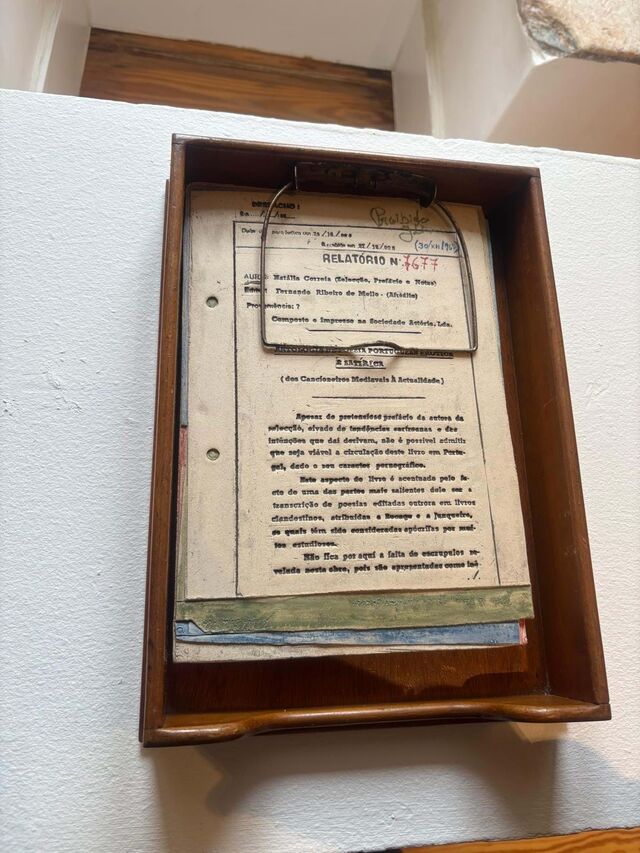 DESPACHO :
Proibido
RELATÓRIO Nº 7677
AUTOR: Natália Correia (Selecção, Prefácio e Notas)
Fernando Ribeiro de Mello - (Afrodite)
Proveniência: ?
Composto e impresso na Sociedade Astória, Lda.
ANTOLOGIA DE POESIA PORTUGUESA EROTICA
E SATÍRICA
(dos Cancioneiros Medievais À Actualidade)
Apesar do pretensioso prefácio da autora da
selecção, eivado de tendências sartreanas e das
intenções que daí derivam, não é possivel admitir
que seja viável a circulação deste livro em Portu-
gal, dado o seu caracter pornográfico.
Este aspecto do livro é acentuado pelo fa-
cto de uma das partes mais salientes dele ser a
transcrição de poesias editadas outrora em livros
clandestinos, atribuidas a Bocage e a Junqueiro,
as quais têm sido consideradas apócrifas por mui-
tos estudiosos.
- Não fica por aqui a falta de escrupulos re-
velada nesta obra, pois são apresentadas como iné
./.